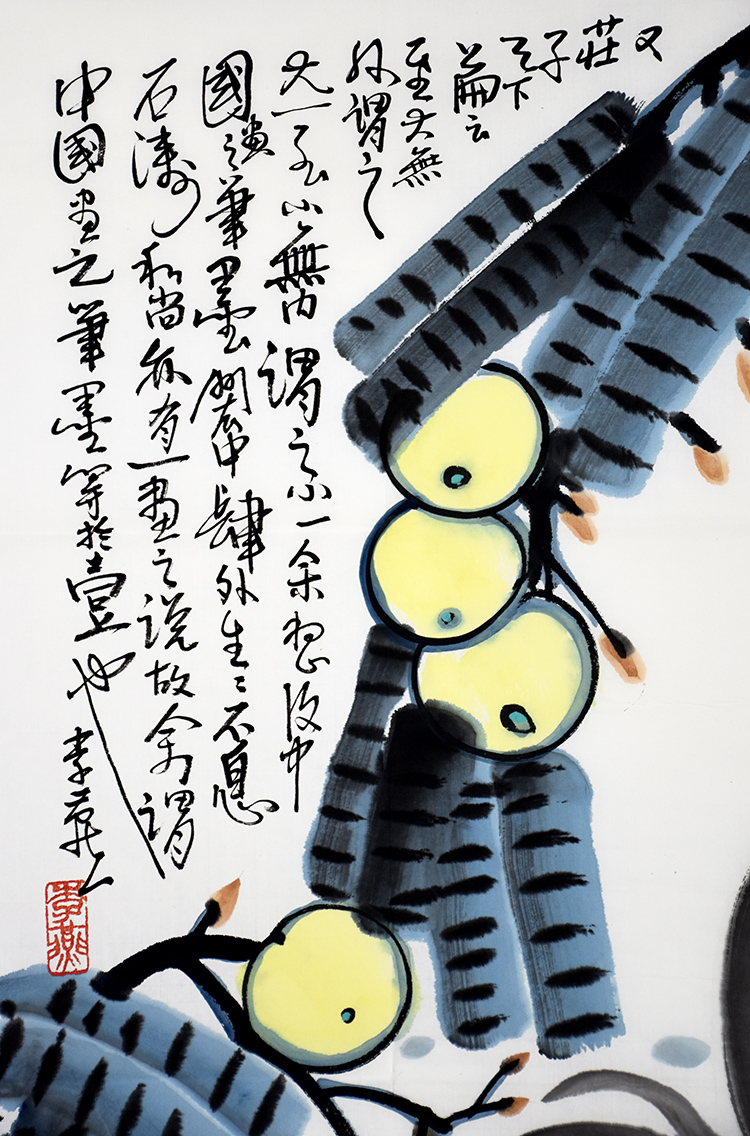 又
莊
子
天下
篇云
至大無
外謂之
大一至小無內謂之小一余想中
國畫之筆墨閎中肆外生生不息
石濤和尚亦有一畫之説故余謂
中國畫之筆墨等於壹也李燕
李燕